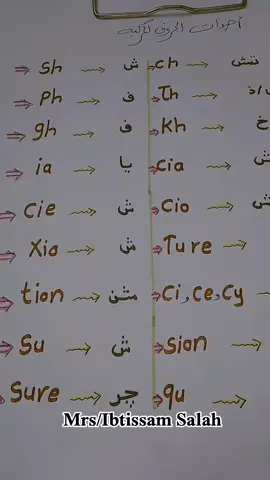 أصوات الحروف المركبة
sh ش ch تش
Ph ف Th
gh ف Kh خ
ia يا cia ش
cie ش cio ش
Xio ش Ture
tion شن Ci, Ce, Cy
Su ش sion
Sure چر qu
Mrs/Ibtissam Salah